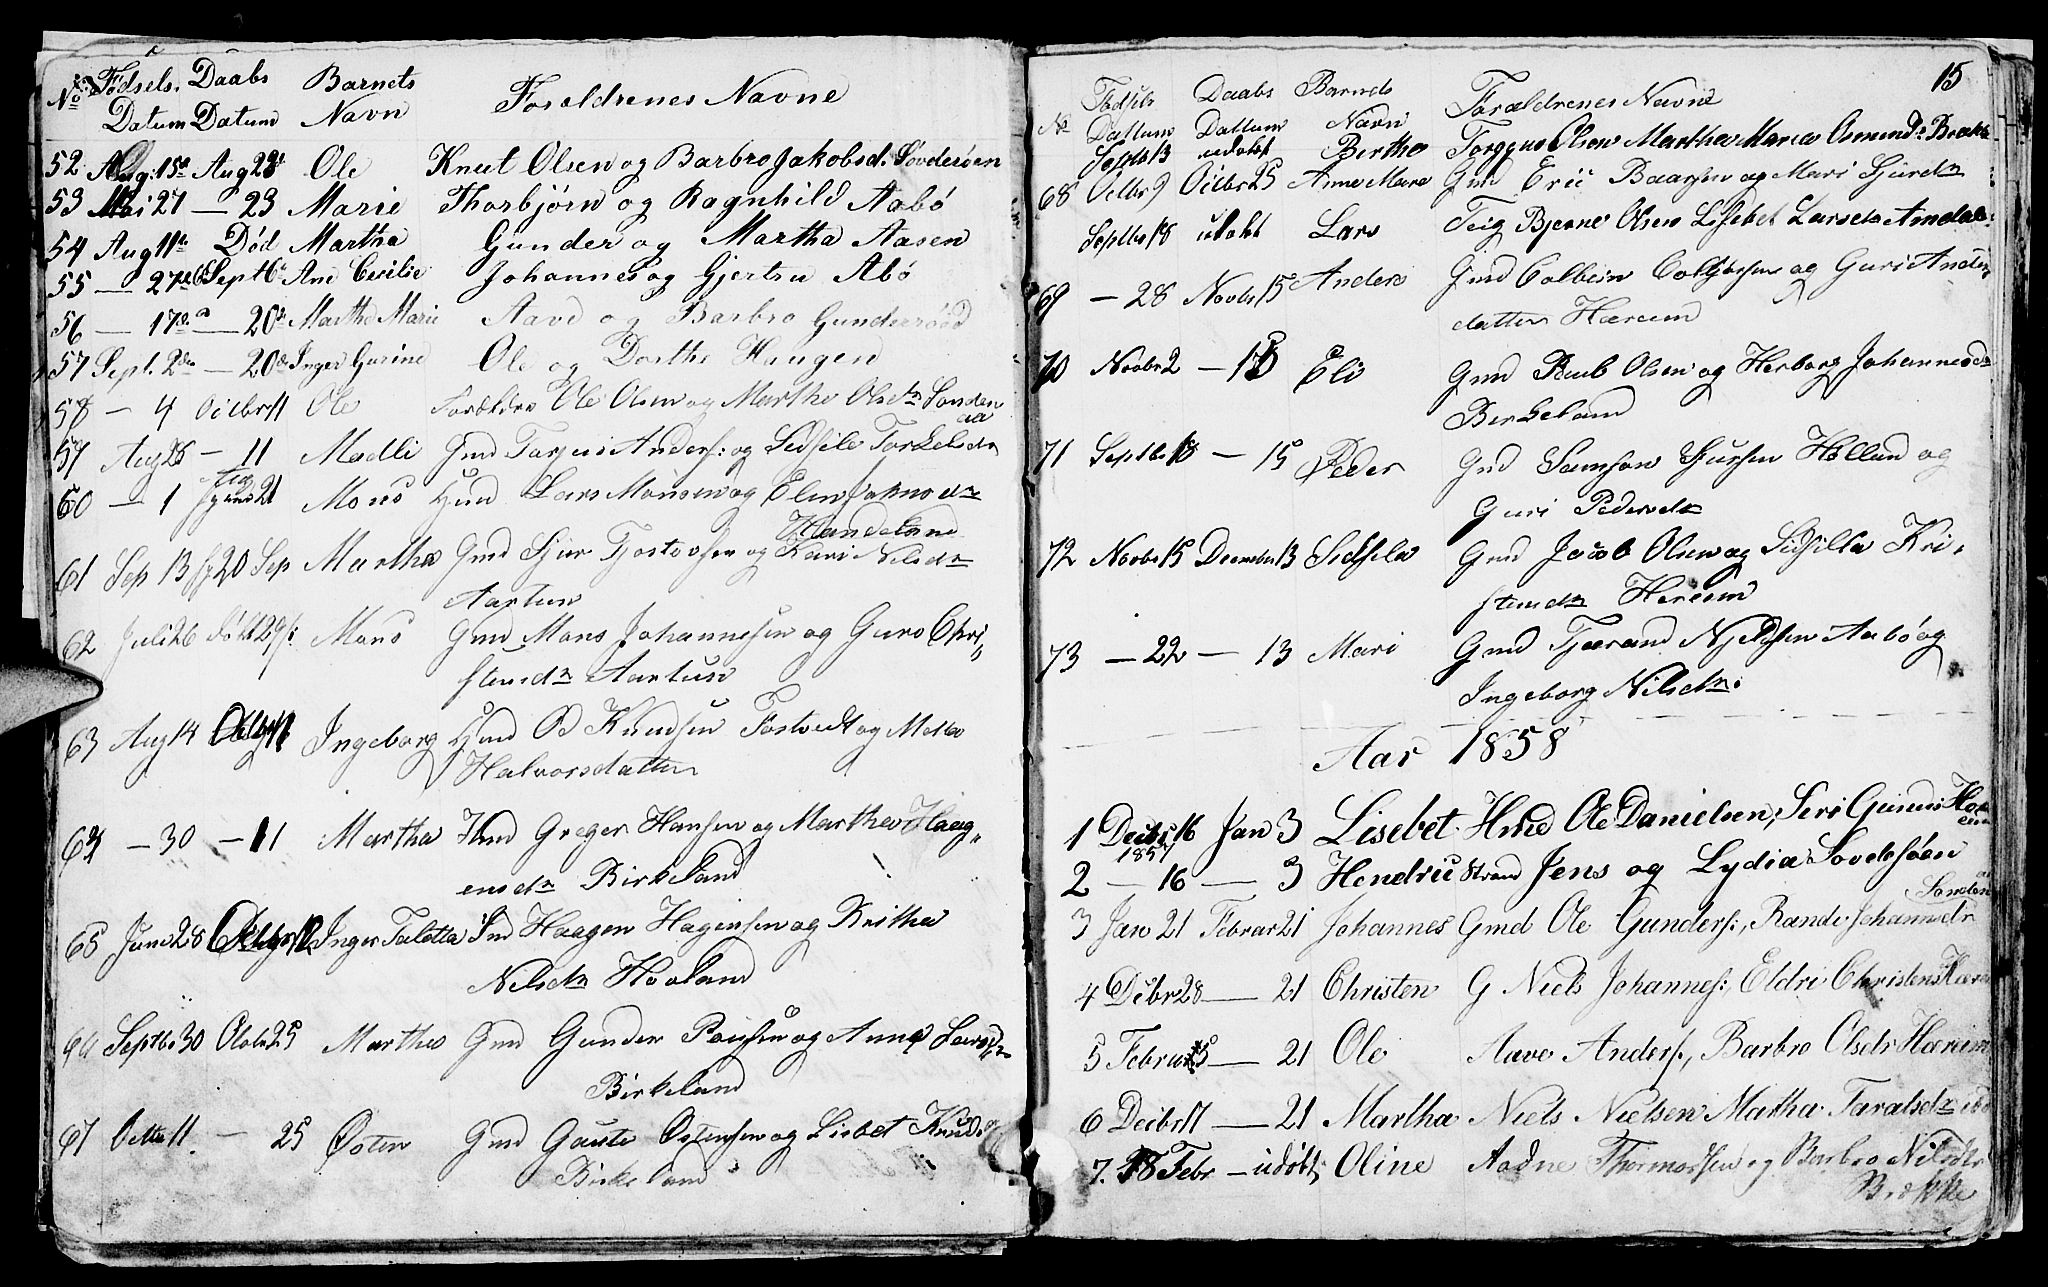 No Fødsels. Daabs Barnets Foraldrenes Navne
Datum Datum Navn
52 Aug: 15de Aug 23 Ole Knut Olsen og Barbro Jakobsd. Sövdesöen
53 Mai 27 — 23 Marie Thorbjörn og Ragnhild Aabö
54 Aug 11te Død Martha Gunder og Martha Aasen
55 — 27de Sept 6te Ane Cecilie Johannes og Gjertru Abö
56 — 17de — 20de Martha Marie Aave og Barbro Gundersöed
57 Sept. 2den — 20de Inger Gurine Ole og Dorthe Haugen
58 — 4 Octbr 11 Ole Forældre Ole Olsen og Martha Olsdtr Sanden
57 Aug 28 — 11 Madli Gmd Torjus Anders: og Sidsile Torkelsdtr
60 — 1 21 Mons Hmd Lars Monsen og Elen Johnsdtr
Handeland
61 Sep 13 20 Sep Martha Gmd Sjur Tjostovsen og Kari Nilsdtr
Aartun
62 Juli 26 døbt 29 Mons Gmd Mons Johannesen og Guro Chri
stensdtr Aartun
63 Aug 14 Octbr 11 Ingeborg Hmd Od Knudsen Tostvedt og Mette
Halvorsdatter
64 — 30 — 11 Martha Hmd Greger Hansen og Martha Haag„
ensdtr Birkeland
65 Juni 28 Inger Talette Ind Haagen Hagensen og Britha
Nilsdtr Hovland
Septbr 30 Octobr 25 Martha Gmd Gunder Poulsen og Anna Larsdtr
Birkeland
67 Octbr 11. — 25 Østen Gmd Gaute Østensen og Lisbet Knuds
Birkeland
15
No Fødsels Daabs Barnets Forældrenes Navne
Dattum Dattum Navn
Septbr 13 udøbt Berthe Torgjus Olsen Martha Maria Osmundsd Brække
68 Octbr 9 Octbr 25 Anne Mare Gmd Eric Baarsen og Mari Sjursdtr
Septbr 18 udøbt Lars Teig Bjerne Olsen Lisebet Larsdtr Amdal
69 — 28 Novbr 15 Anders Gmd Colbein Colbjørsen og Guri Anders„
datter Hæreim
70 Novbr 2 — 15 Eli Gmd Paul Olsen og Herborg Johannesdtr
Birkeland
71 Septbr 18 — 15 Peder Gmd Samson Sjursen Hølland og
Guri Pedersdtr
72 Novbr 15 December 13 Sidsela Gmd Jacob Olsen og Sidsilla Kri„
stensdtr Hereim
73 — 22 — 13 Mari Gmd Tjærand Njeldsen Aabö og
Ingeborg Nilsdtr.
Aar 1858
1 Decbr 16 Jan 3 Lisebet Hmd Ole Danielsen, Seri Gunnis Hær
1857 eim
2 — 16 — 3 Hendric Strand Jens og Lydia Sovdesöen
Sanden
3 Jan 21 Februar 21 Johannes Gmd Ole Gunders:, Rande Johannesdtr
4 Decbr 28 — 21 Christen G Niels Johannes:, Eldri Christens Hærei
5 Februar 5 — 21 Ole Aave Anders:, Barbro Olsdtr Hæreim
6 Decbr 17 — 21 Martha Niels Nielsen Martha Taralsdtr ibd
7. 18 Febr — udøbt Oline Aadne Thormodsen og Barbro Nilsdtr
Brekke